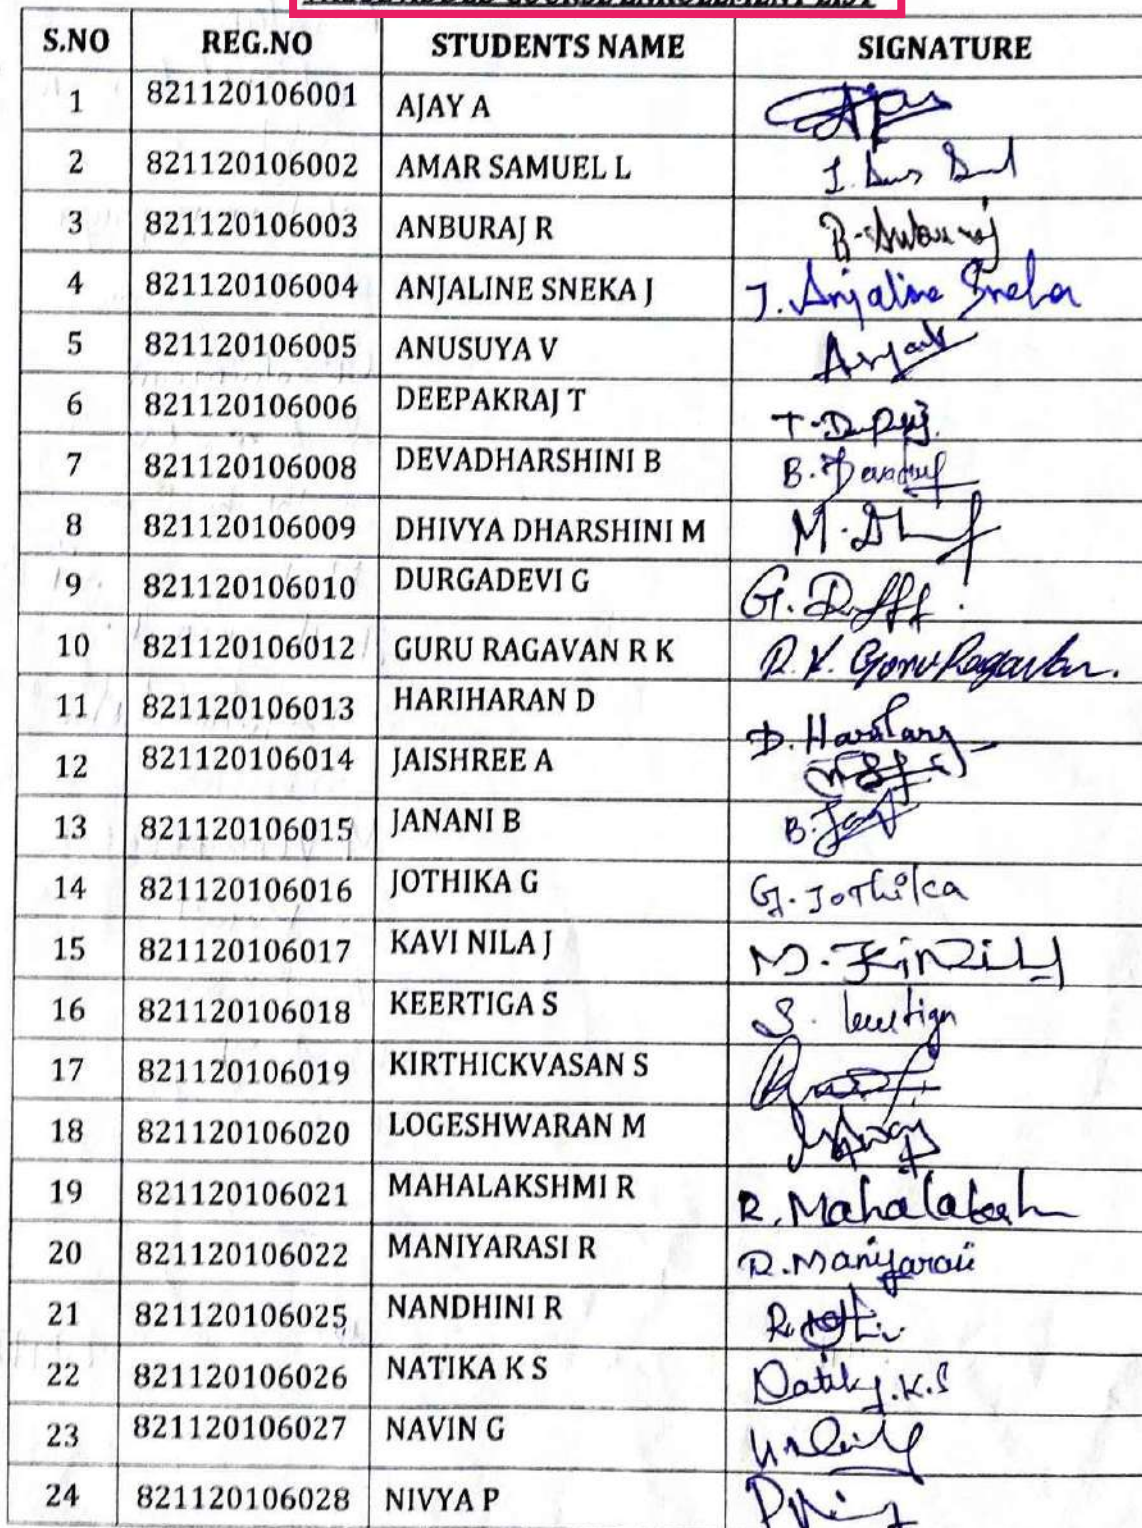 VALUE ADDED COURSE ENROLLMENT LIST
S.NO REG.NO STUDENTS NAME SIGNATURE
1 821120106001 AJAY A
2 821120106002 AMAR SAMUEL L
3 821120106003 ANBURAJ R
4 821120106004 ANJALINE SNEKA J J. Anjaline Sneka
5 821120106005 ANUSUYA V
6 821120106006 DEEPAKRAJ T
7 821120106008 DEVADHARSHINI B
8 821120106009 DHIVYA DHARSHINI M
9 821120106010 DURGADEVI G
10 821120106012 GURU RAGAVAN R K R.K. Guru Ragavan.
11 821120106013 HARIHARAN D
12 821120106014 JAISHREE A
13 821120106015 JANANI B
14 821120106016 JOTHIKA G G. Jothika
15 821120106017 KAVI NILA J
16 821120106018 KEERTIGA S S. Keertiga
17 821120106019 KIRTHICKVASAN S
18 821120106020 LOGESHWARAN M
19 821120106021 MAHALAKSHMI R R. Mahalaksh
20 821120106022 MANIYARASI R R. Maniyarasi
21 821120106025 NANDHINI R
22 821120106026 NATIKA K S Natika.K.S
23 821120106027 NAVIN G
24 821120106028 NIVYA P